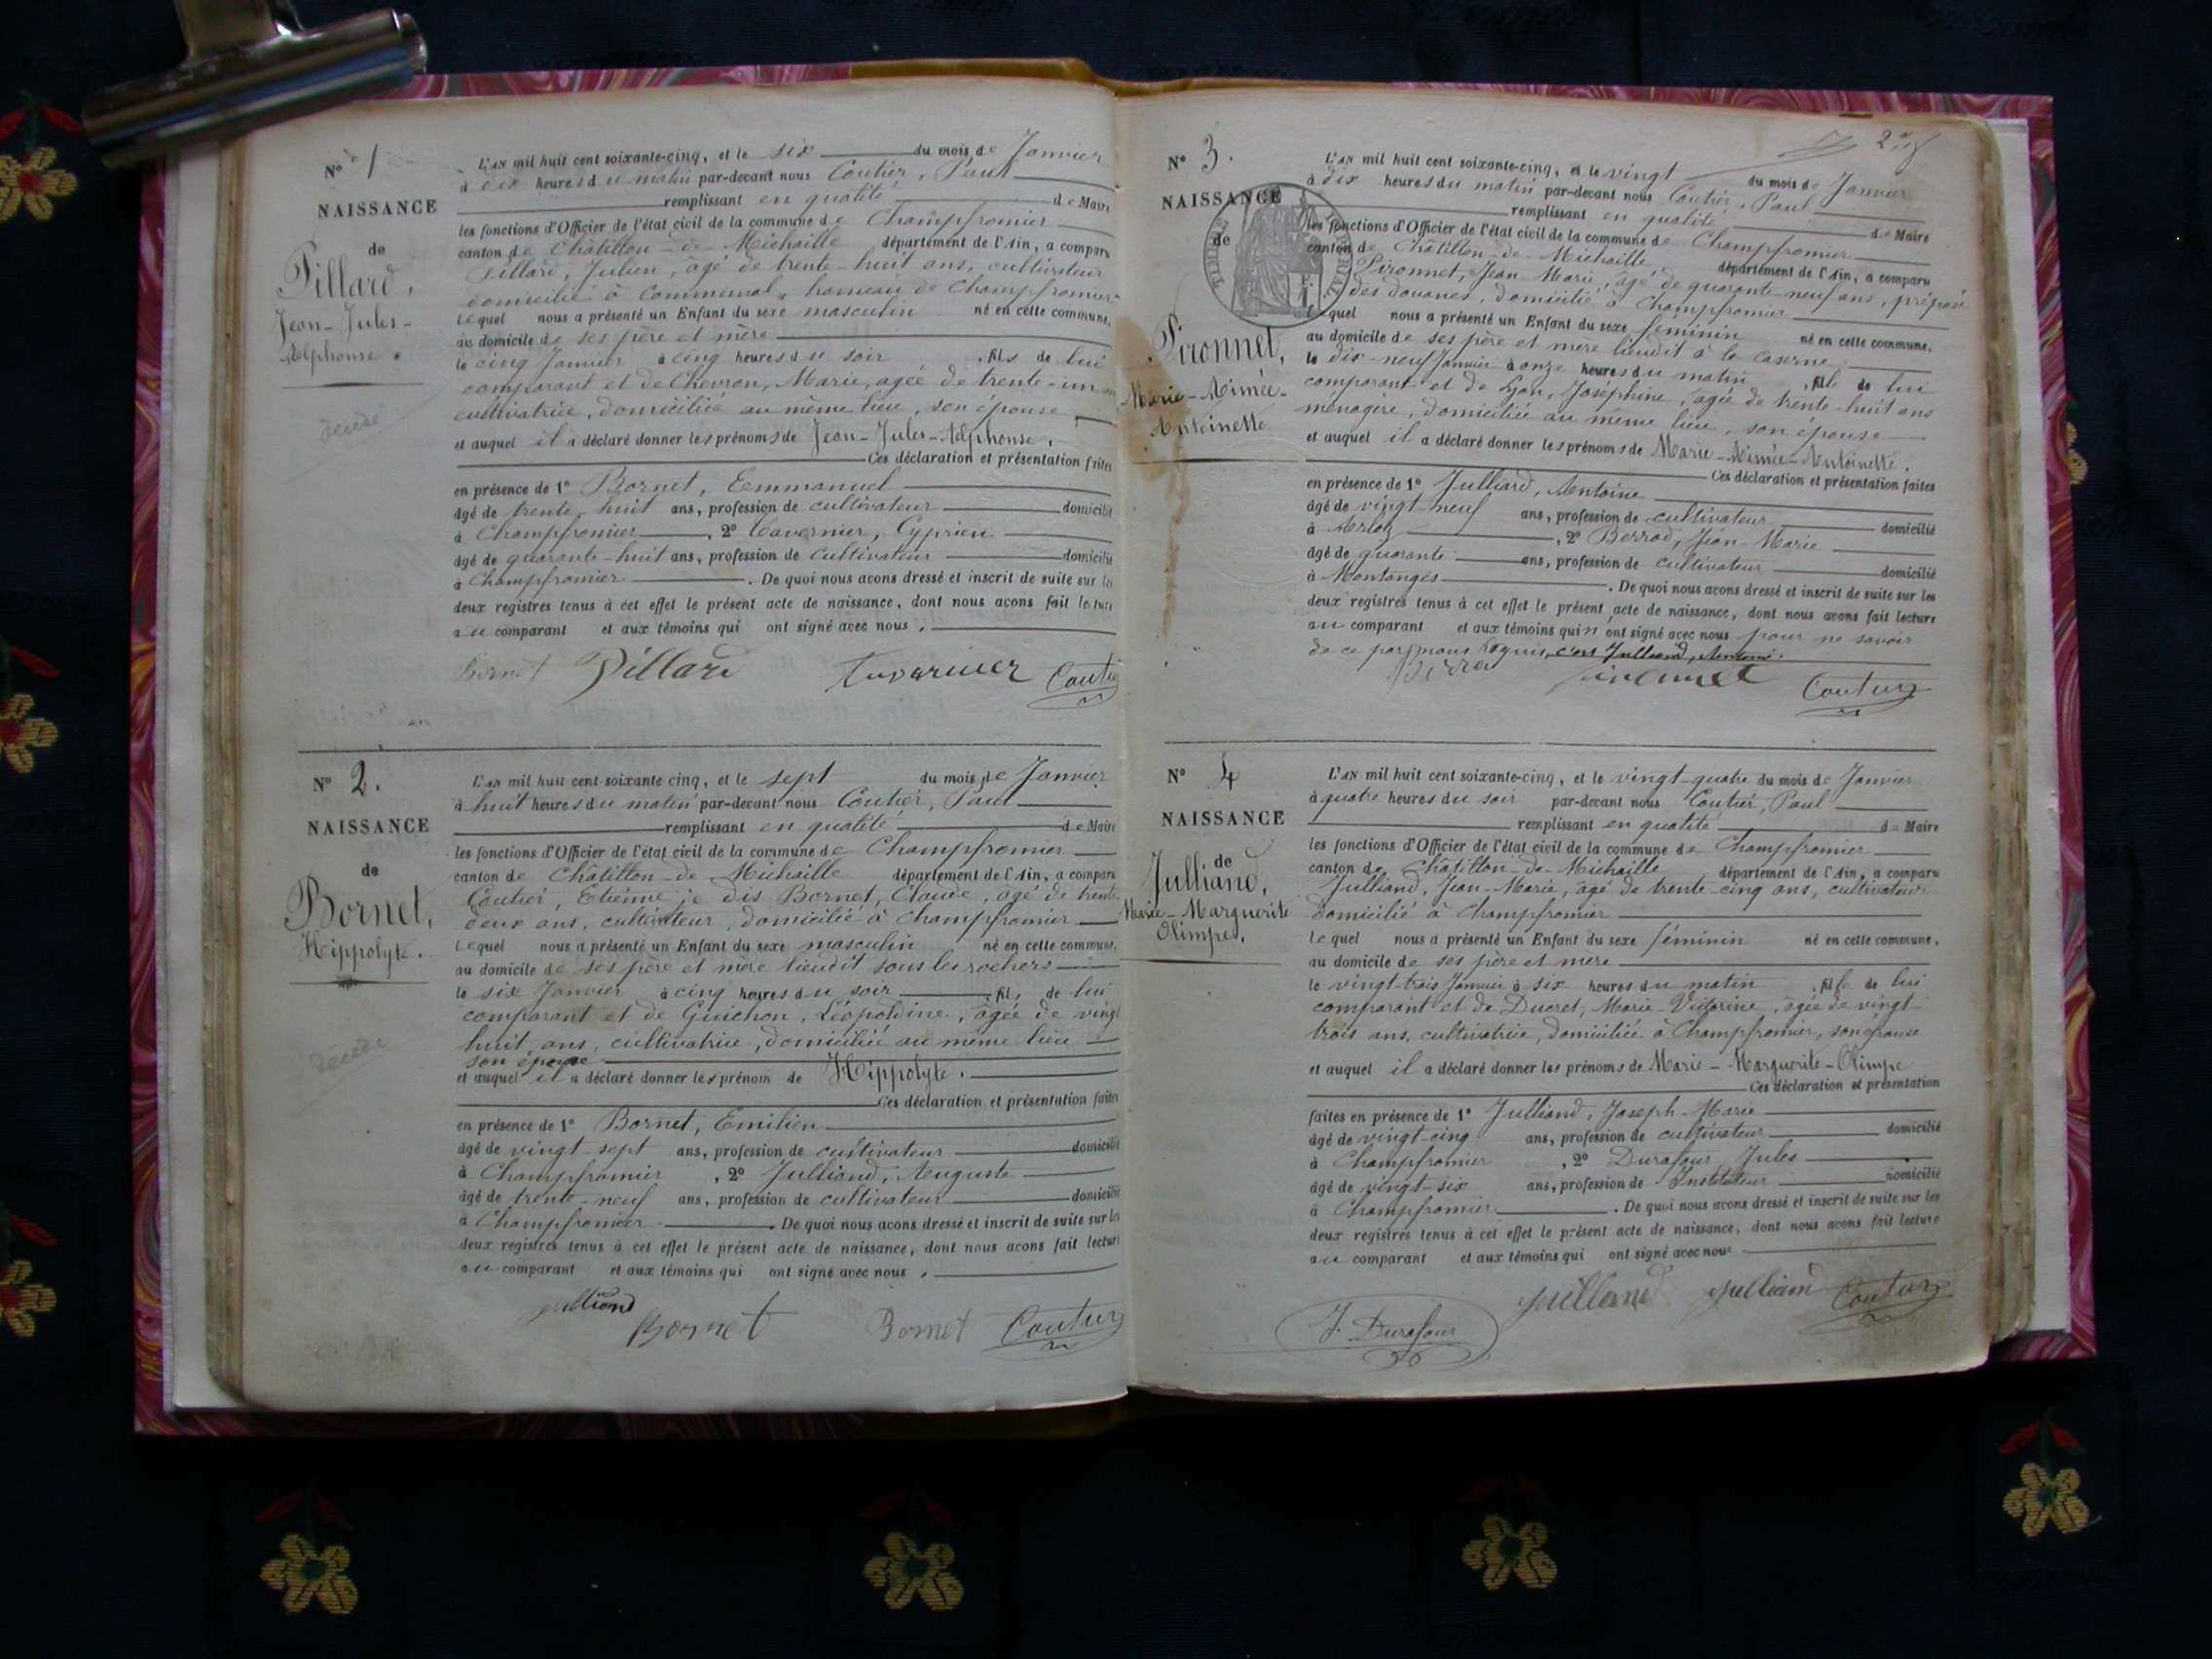 N° 1
NAISSANCE
de
Pillard,
Jean-Jules-
Alphonse.
décédé
L'AN mil huit cent soixante-cinq, et le six du mois de Janvier
à dix heures du matin par-devant nous Coutier, Paul
remplissant en qualité de Maire
les fonctions d'Officier de l'état civil de la commune de Champfromier
canton de Châtillon-de-Michaille département de l'Ain, a comparu
Pillard, Julien, âgé de trente-huit ans, cultivateur
domicilié à Communal, hameau de Champfromier
Lequel nous a présenté un Enfant du sexe masculin né en cette commune,
au domicile de ses père et mère
le cinq Janvier à cinq heures du soir, fils de lui
comparant et de Chevron, Marie, agée de trente-un
cultivatrice, domiciliée au même lieu, son épouse
et auquel il a déclaré donner les prénoms de Jean-Jules-Alphonse.
Ces déclaration et présentation faites
en présence de 1° Bornet, Emmanuel
âgé de trente-huit ans, profession de cultivateur domicilié
à Champfromier, 2° Tavernier, Cyprien
âgé de quarante-huit ans, profession de cultivateur domicilié
à Champfromier. De quoi nous avons dressé et inscrit de suite sur les
deux registres tenus à cet effet le présent acte de naissance, dont nous avons fait lecture
au comparant et aux témoins qui ont signé avec nous.
Bornet Pillard Tavernier Coutier
N° 2.
NAISSANCE
de
Bornet,
Hippolyte.
décédé
L'AN mil huit cent soixante cinq, et le sept du mois de Janvier
à huit heures du matin par-devant nous Coutier, Paul
remplissant en qualité de Maire
les fonctions d'Officier de l'état civil de la commune de Champfromier
canton de Châtillon-de-Michaille département de l'Ain, a comparu
Coutier, Etienne je dis Bornet, Claude, âgé de trente
deux ans, cultivateur, domicilié à Champfromier
Lequel nous a présenté un Enfant du sexe masculin né en cette commune,
au domicile de ses père et mère lieudit sous les rochers
le six Janvier à cinq heures du soir, fils de lui
comparant et de Guichon, Léopoldine, âgée de vingt
huit ans, cultivatrice, domiciliée au même lieu
son épouse
et auquel il a déclaré donner les prénom de Hippolyte.
Ces déclaration et présentation faites
en présence de 1° Bornet, Emilien
âgé de vingt-sept ans, profession de cultivateur domicilié
à Champfromier, 2° Julliand, Auguste
âgé de trente-neuf ans, profession de cultivateur domicilié
à Champfromier. De quoi nous avons dressé et inscrit de suite sur les
deux registres tenus à cet effet le présent acte de naissance, dont nous avons fait lecture
au comparant et aux témoins qui ont signé avec nous.
Julliand Bornet Bornet Coutier
2
N° 3.
NAISSANCE
de
TIMBRE IMPERIAL
Pironnet,
Marie-Aimée-
Antoinette
L'AN mil huit cent soixante-cinq, et le vingt du mois de Janvier
à dix heures du matin par-devant nous Coutier, Paul
remplissant en qualité de Maire
les fonctions d'Officier de l'état civil de la commune de Champfromier
canton de Châtillon-de-Michaille, département de l'Ain, a comparu
Pironnet, Jean-Marie, âgé de quarante-neuf ans, préposé
des douanes, domicilié à Champfromier
Lequel nous a présenté un Enfant du sexe féminin né en cette commune,
au domicile de ses père et mère lieudit à la caserne
le dix-neuf Janvier à onze heures du matin, fille de lui
comparant et de Lyon, Joséphine, âgée de trente-huit ans
ménagère, domiciliée au même lieu, son épouse
et auquel il a déclaré donner les prénoms de Marie-Aimée-Antoinette.
Ces déclaration et présentation faites
en présence de 1° Julliard, Antoine
âgé de vingt-neuf ans, profession de cultivateur domicilié
à Arlod, 2° Berrod, Jean-Marie
âgé de quarante ans, profession de cultivateur domicilié
à Montanges. De quoi nous avons dressé et inscrit de suite sur les
deux registres tenus à cet effet le présent acte de naissance, dont nous avons fait lecture
au comparant et aux témoins qui n'ont signé avec nous pour ne savoir
de ce par nous requis
Coutier
N° 4
NAISSANCE
de
Julliand,
Marie-Marguerite
Olimpe,
L'AN mil huit cent soixante-cinq, et le vingt-quatre du mois de Janvier
à quatre heures du soir par-devant nous Coutier, Paul
remplissant en qualité de Maire
les fonctions d'Officier de l'état civil de la commune de Champfromier
canton de Châtillon-de-Michaille département de l'Ain, a comparu
Julliand, Jean-Marie, âgé de trente-cinq ans, cultivateur
domicilié à Champfromier
Lequel nous a présenté un Enfant du sexe féminin né en cette commune,
au domicile de ses père et mère
le vingt-trois Janvier à six heures du matin, fille de lui
comparant et de Ducret, Marie-Victorine, âgée de vingt
trois ans, cultivatrice, domiciliée à Champfromier, son épouse
et auquel il a déclaré donner les prénoms de Marie-Marguerite-Olimpe
Ces déclaration et présentation
faites en présence de 1° Julliand, Joseph-Marie
âgé de vingt-cinq ans, profession de cultivateur domicilié
à Champfromier, 2° Durafour Jules
âgé de vingt-six ans, profession de Instituteur domicilié
à Champfromier. De quoi nous avons dressé et inscrit de suite sur les
deux registres tenus à cet effet le présent acte de naissance, dont nous avons fait lecture
au comparant et aux témoins qui ont signé avec nous
J. Durafour Julliand Julliand Coutier